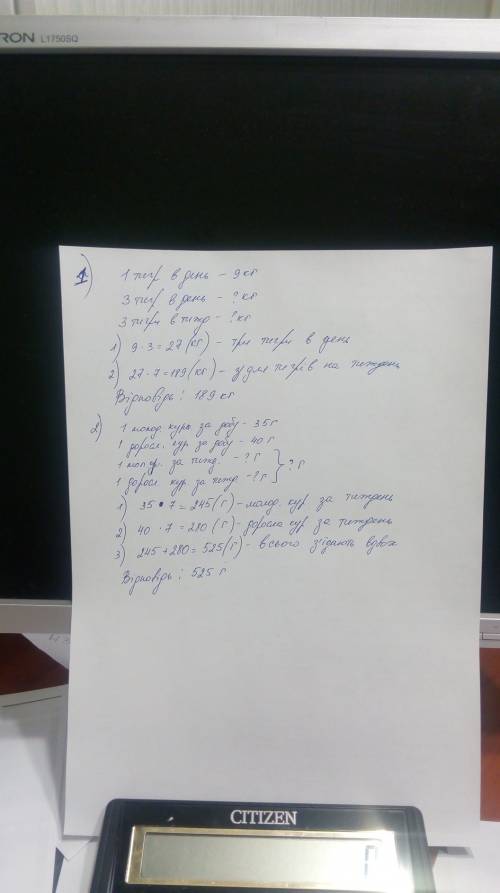 RON L1750SQ
1)
1 тигр в день – 9 кг
3 тигр в день – ? кг
3 тигри в тижд – ? кг
1) 9 · 3 = 27 (кг) – три тигри в день
2) 27 · 7 = 189 (кг) – для тигрів на тиждень
Відповідь: 189 кг
2)
1 молод. курк. за добу – 35 г
1 доросл. кур. за добу – 40 г
1 мол. за тижд. – ? г
1 доросл. кур. за тижд – ? г } ? г
1) 35 · 7 = 245 (г) – молод. кур за тиждень
2) 40 · 7 = 280 (г) – доросла кур за тиждень
3) 245 + 280 = 525 (г) – всього з'їдають вдвох
Відповідь: 525 г
CITIZEN